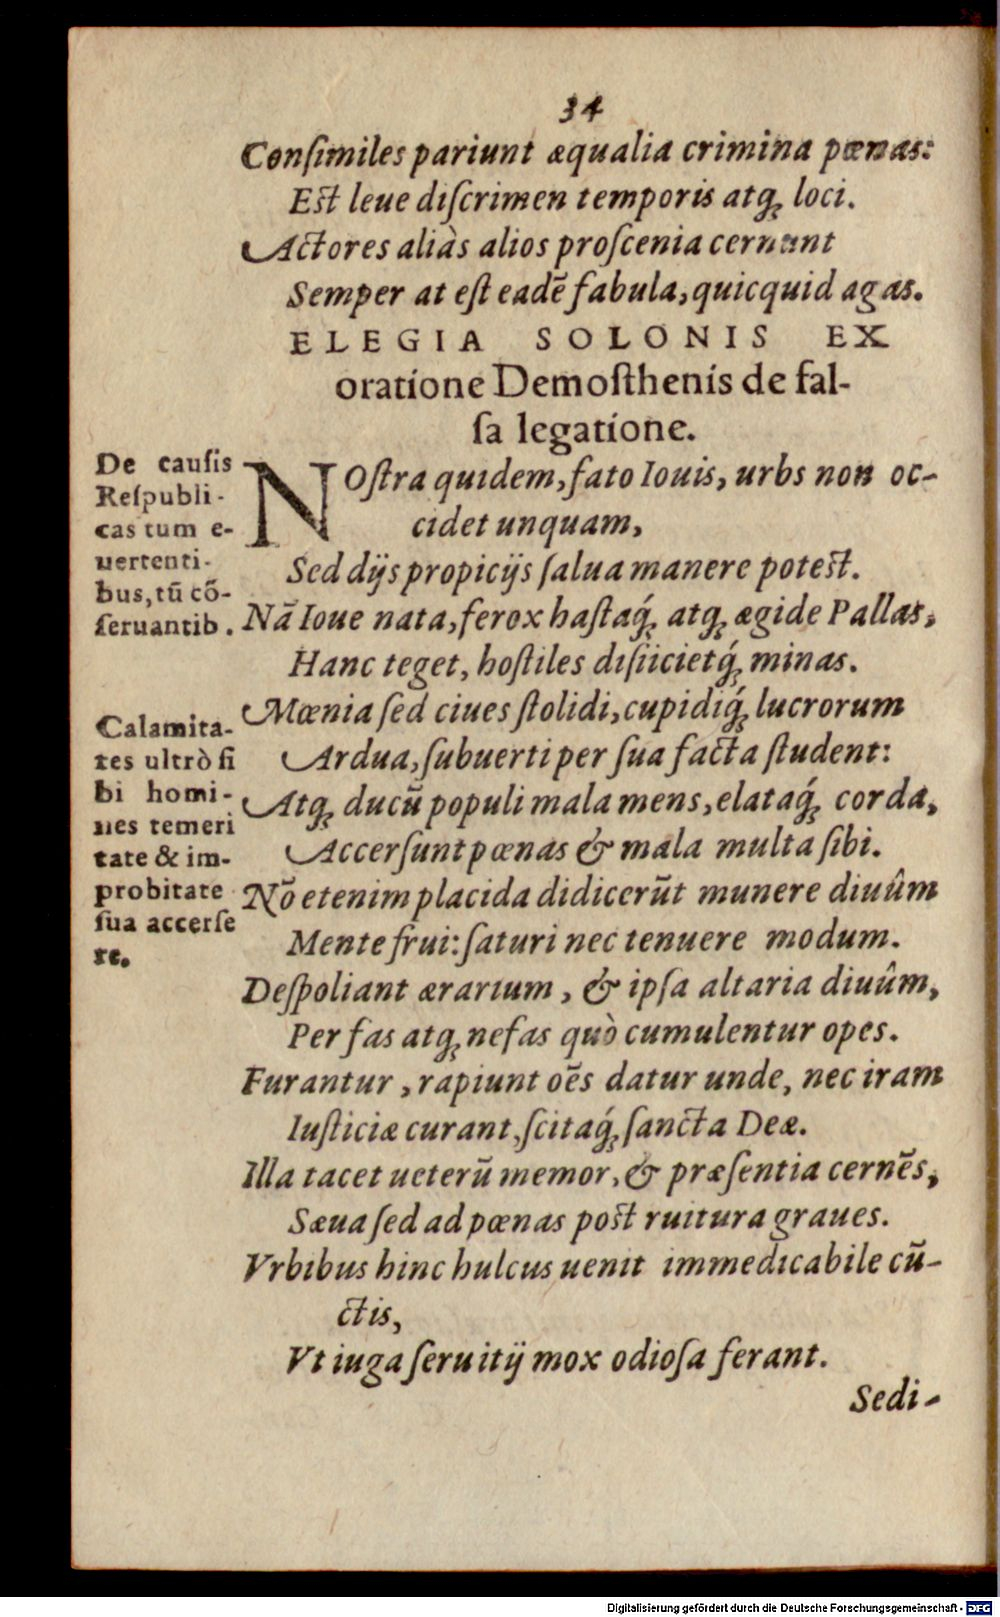 34
Conſimiles pariunt æqualia crimina pœnas:
Eſt leue diſcrimen temporis atq; loci.
Actores aliàs alios proſcenia cernunt
Semper at eſt eadē fabula, quicquid agas.
ELEGIA SOLONIS EX
oratione Demoſthenis de fal-
ſa legatione.
De cauſis
Reſpubli-
cas tum e-
uertenti-
bus, tū cō-
ſeruantib.
NOſtra quidem, fato Iouis, urbs non oc-
cidet unquam,
Sed dijs propicijs ſalua manere poteſt.
Nā Ioue nata, ferox haſtaq́; atq; ægide Pallas,
Hanc teget, hoſtiles diſiicietq́; minas.
Calamita-
tes ultrò ſi
bi homi-
nes temeri
tate & im-
probitate
ſua accerſe
re.
Mœnia ſed ciues ſtolidi, cupidiq́; lucrorum
Ardua, ſubuerti per ſua facta ſtudent:
Atq; ducū populi mala mens, elataq́; corda,
Accerſunt pœnas & mala multa ſibi.
Nō etenim placida didicerūt munere diuûm
Mente frui: ſaturi nec tenuere modum.
Deſpoliant ærarium, & ipſa altaria diuûm,
Per fas atq; nefas quò cumulentur opes.
Furantur, rapiunt oēs datur unde, nec iram
Iuſticiæ curant, ſcitaq́; ſancta Deæ.
Illa tacet ueterū memor, & præſentia cernēs,
Sæua ſed ad pœnas poſt ruitura graues.
Vrbibus hinc hulcus uenit immedicabile cū-
ctis,
Vt iuga ſeruitij mox odioſa ferant.
Sedi-
Digitalisierung gefördert durch die Deutsche Forschungsgemeinschaft - DFG